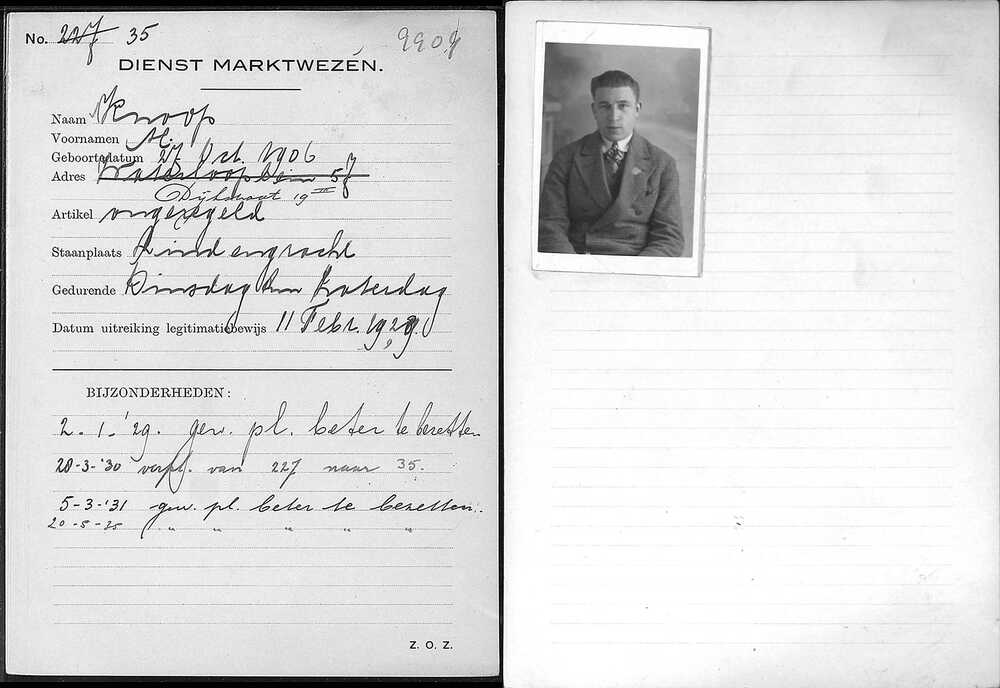 No. 227 35
DIENST MARKTWEZEN.
Naam Knoop
Voornamen M.
Geboortedatum 27 Oct. 1906
Adres Waterlooplein 57
Dijkstraat 19 III
Artikel ongeregeld
Staanplaats Lindengracht
Gedurende Dinsdag Zaterdag
Datum uitreiking legitimatiebewijs 11 Febr. 1929.
BIJZONDERHEDEN:
2-1-'29. gew. pl. beter te bezetten
28-3-'30 verpl. van 227 naar 35.
5-3-'31 gew. pl. beter te bezetten.
20-5-35 " " " " "
Z. O. Z.